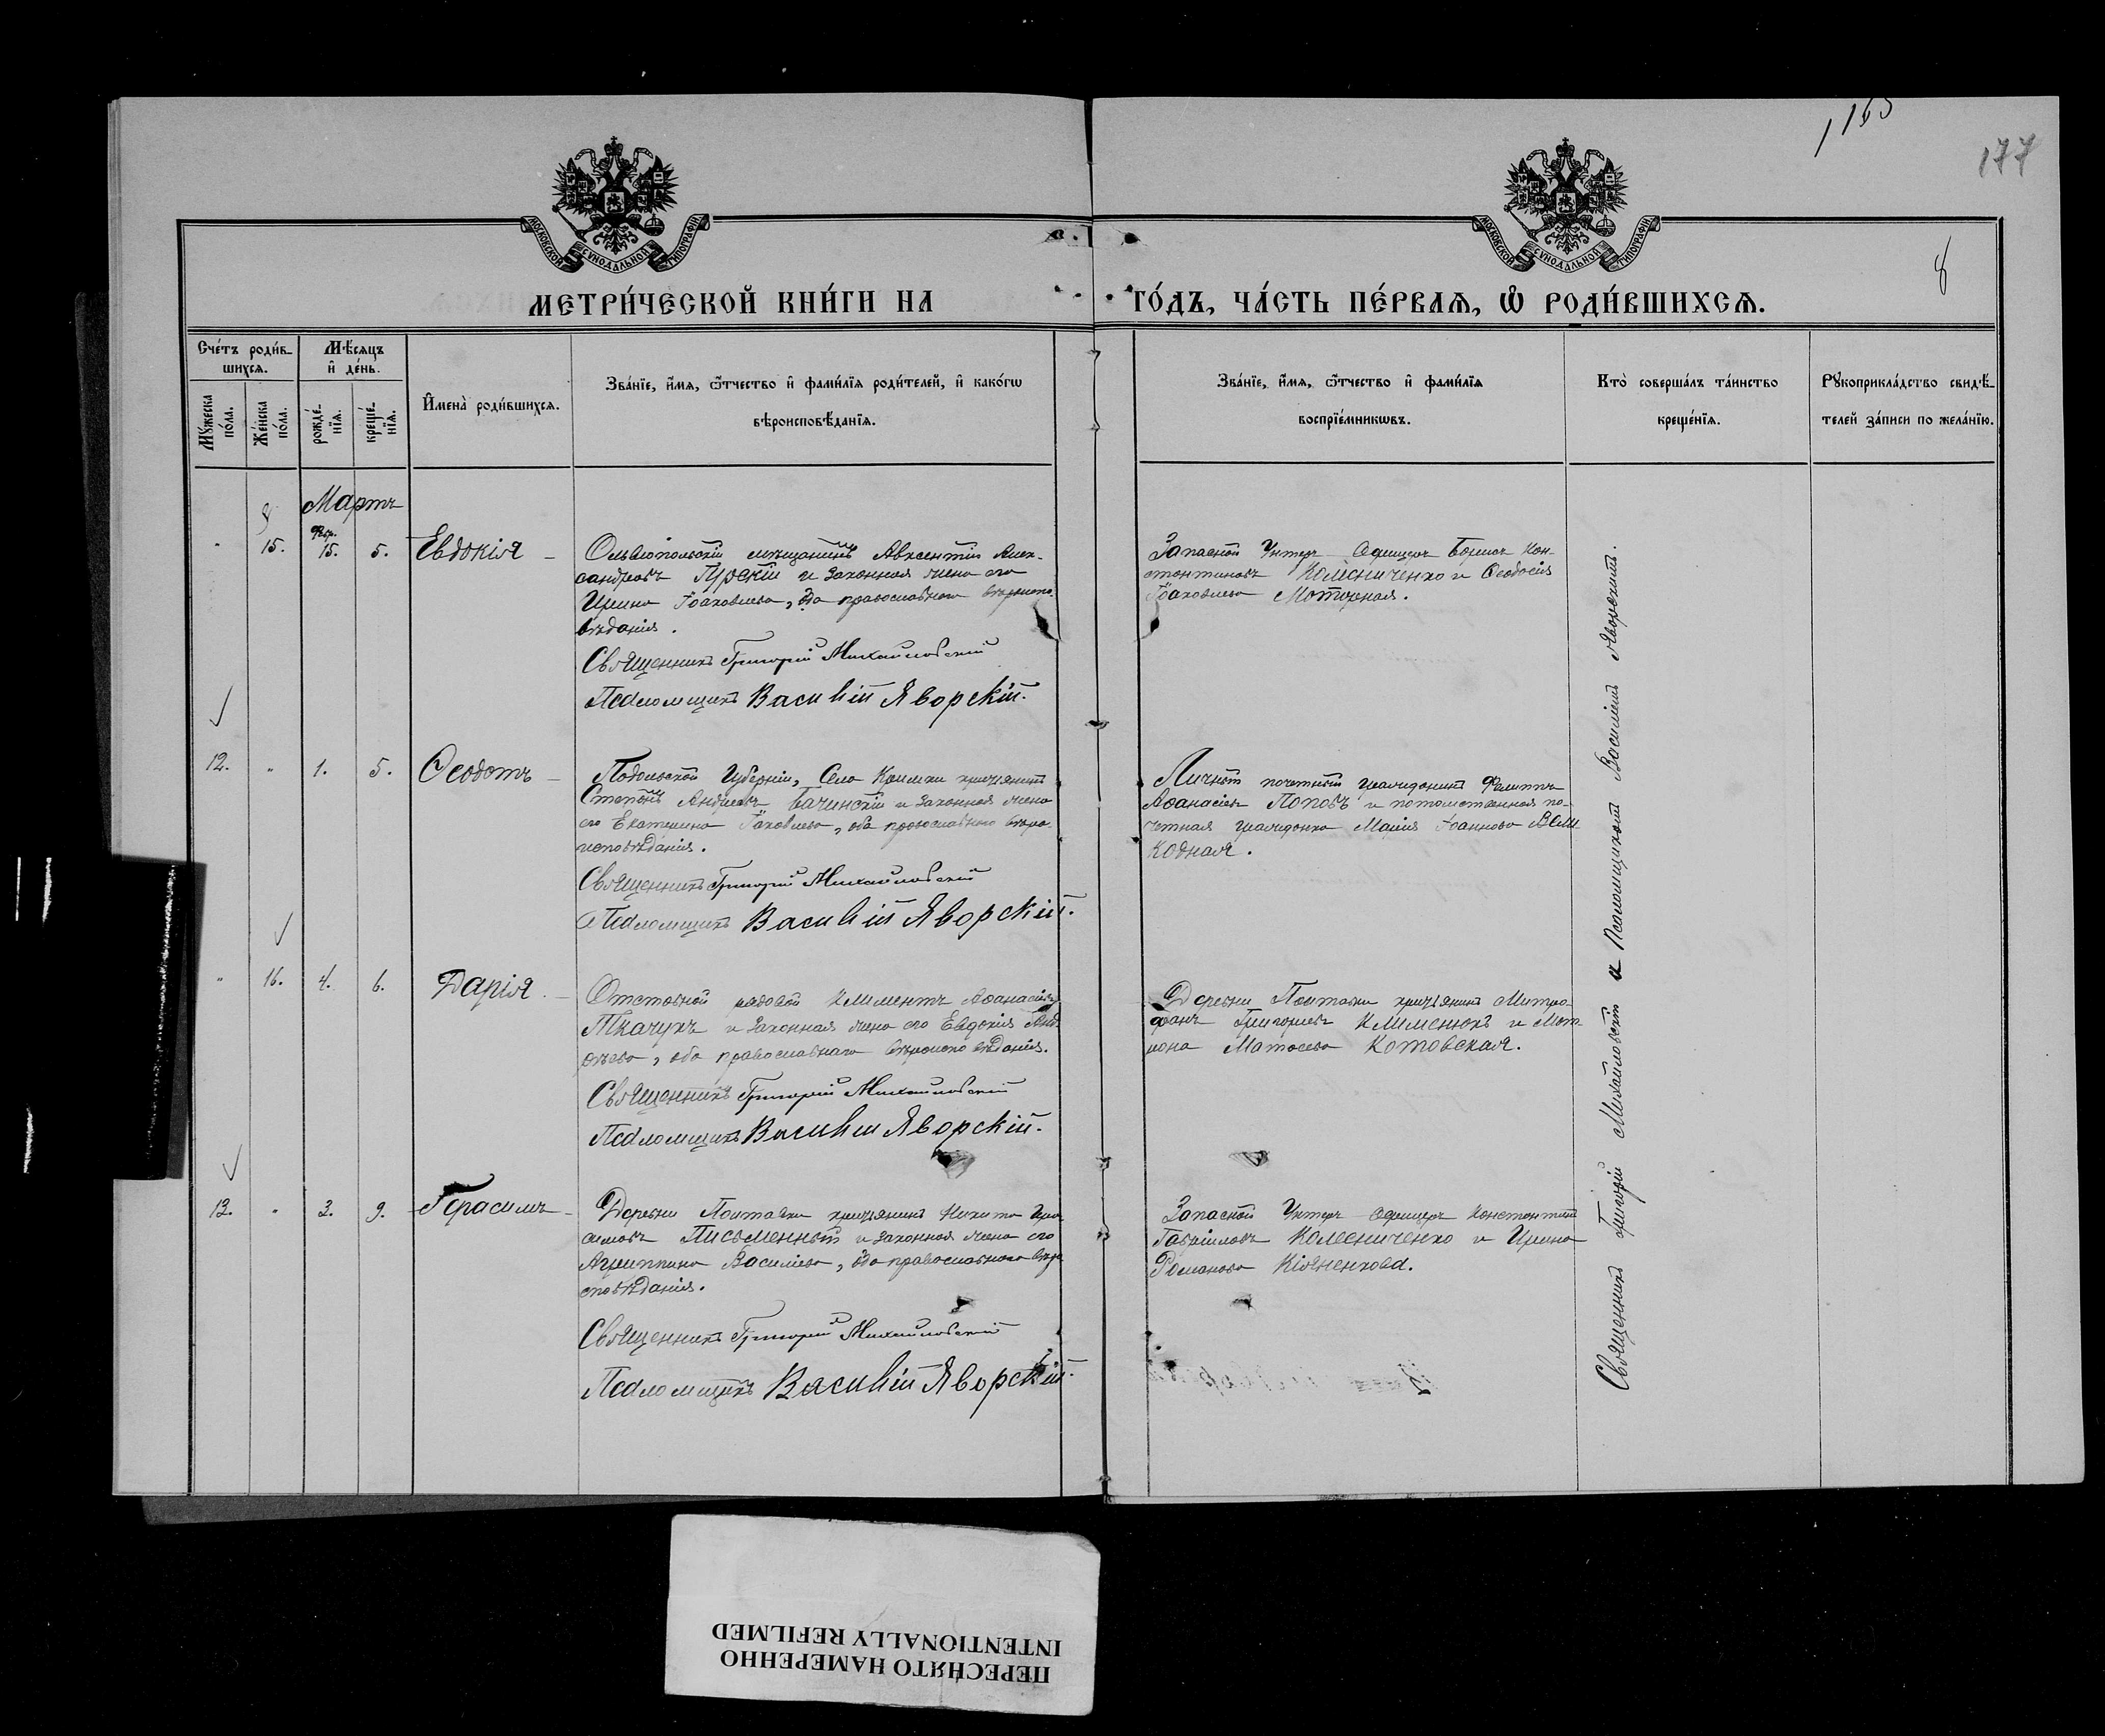 1165
177
8
МОСКОВСКОЙ СУНОДАЛЬНОЙ ТИПОГРАФІИ
МОСКОВСКОЙ СУНОДАЛЬНОЙ ТИПОГРАФІИ
МЕТРИ́ЧЕСКОЙ КНИ́ГИ НА
ГО́ДЪ, ЧА́СТЬ ПЕ́РВАѦ, Ѡ҆ РОДИ́ВШИХСѦ.
Сче́тъ роди́в-
шихсѧ.
Мѣ́сѧцъ
и҆ де́нь.
Мꙋ́жеска
по́ла.
Же́нска
по́ла.
рожде́-
нїѧ.
креще́-
нїѧ.
И҆мена̀ роди́вшихсѧ.
Зва́нїе, и҆́мѧ, ѻ҆́тчество и҆ фами́лїѧ роди́телей, и҆ како́гѡ
вѣроисповѣ́данїѧ.
Зва́нїе, и҆́мѧ, ѻ҆́тчество и҆ фами́лїѧ
воспрїе́мникѡвъ.
Кто̀ соверша́лъ та́инство
креще́нїѧ.
Рꙋкоприкла́дство свидѣ́-
телей за́писи по жела́нїю.
Мартъ
" 15. Февр. 15. 5. Евдокія
Ольвіопольскій мѣщанинъ Авксентій Алек-
сандровъ Гурскій и законная жена его
Ирина Іоаковлева, оба православнаго вѣроиспо-
вѣданія.
Священникъ Григорій Михайловскій
Псаломщикъ Василій Яворскій.
Запасной Унтеръ Офицеръ Борисъ Кон-
стантиновъ Колесниченко и Ѳеодосія
Іоаковлева Моторная.
12. " 1. 5. Ѳеодотъ
Подольской Губерніи, Села Кримки крестьянинъ
Степанъ Андреевъ Бачинскій и законная жена
его Екатерина Іаковлева, оба православнаго вѣро-
исповѣданія.
Священникъ Григорій Михайловскій
Псаломщикъ Василій Яворскій.
Личный почетный гражданинъ Филиппъ
Аѳанасіевъ Поповъ и потомственная по-
четная гражданка Марія Іоаннова Вели-
кодная.
" 16. 4. 6. Дарія
Отставной рядовой Климентъ Аѳанасіевъ
Ткачукъ и законная жена его Евдокія Анд-
реева, оба православнаго вѣроисповѣданія.
Священникъ Григорій Михайловскій
Псаломщикъ Василій Яворскій.
Деревни Полтавки крестьянинъ Митро-
фанъ Григорьевъ Клименюкъ и Мат-
рона Матѳеева Котовская.
13. " 3. 9. Герасимъ
Деревни Полтавки крестьянинъ Никита Гера-
симовъ Письменный и законная жена его
Агриппина Василіева, оба православнаго вѣрои-
сповѣданія.
Священникъ Григорій Михайловскій
Псаломщикъ Василій Яворскій.
Запасной Унтеръ офицеръ Константинъ
Гавріиловъ Колесниченко и Ирина
Романова Кіяненкова.
Священникъ Григорій Михайловскій и Псаломщикомъ Василіемъ Яворскимъ.
ПЕРЕСНЯТО НАМЕРЕННО
INTENTIONALLY REFILMED